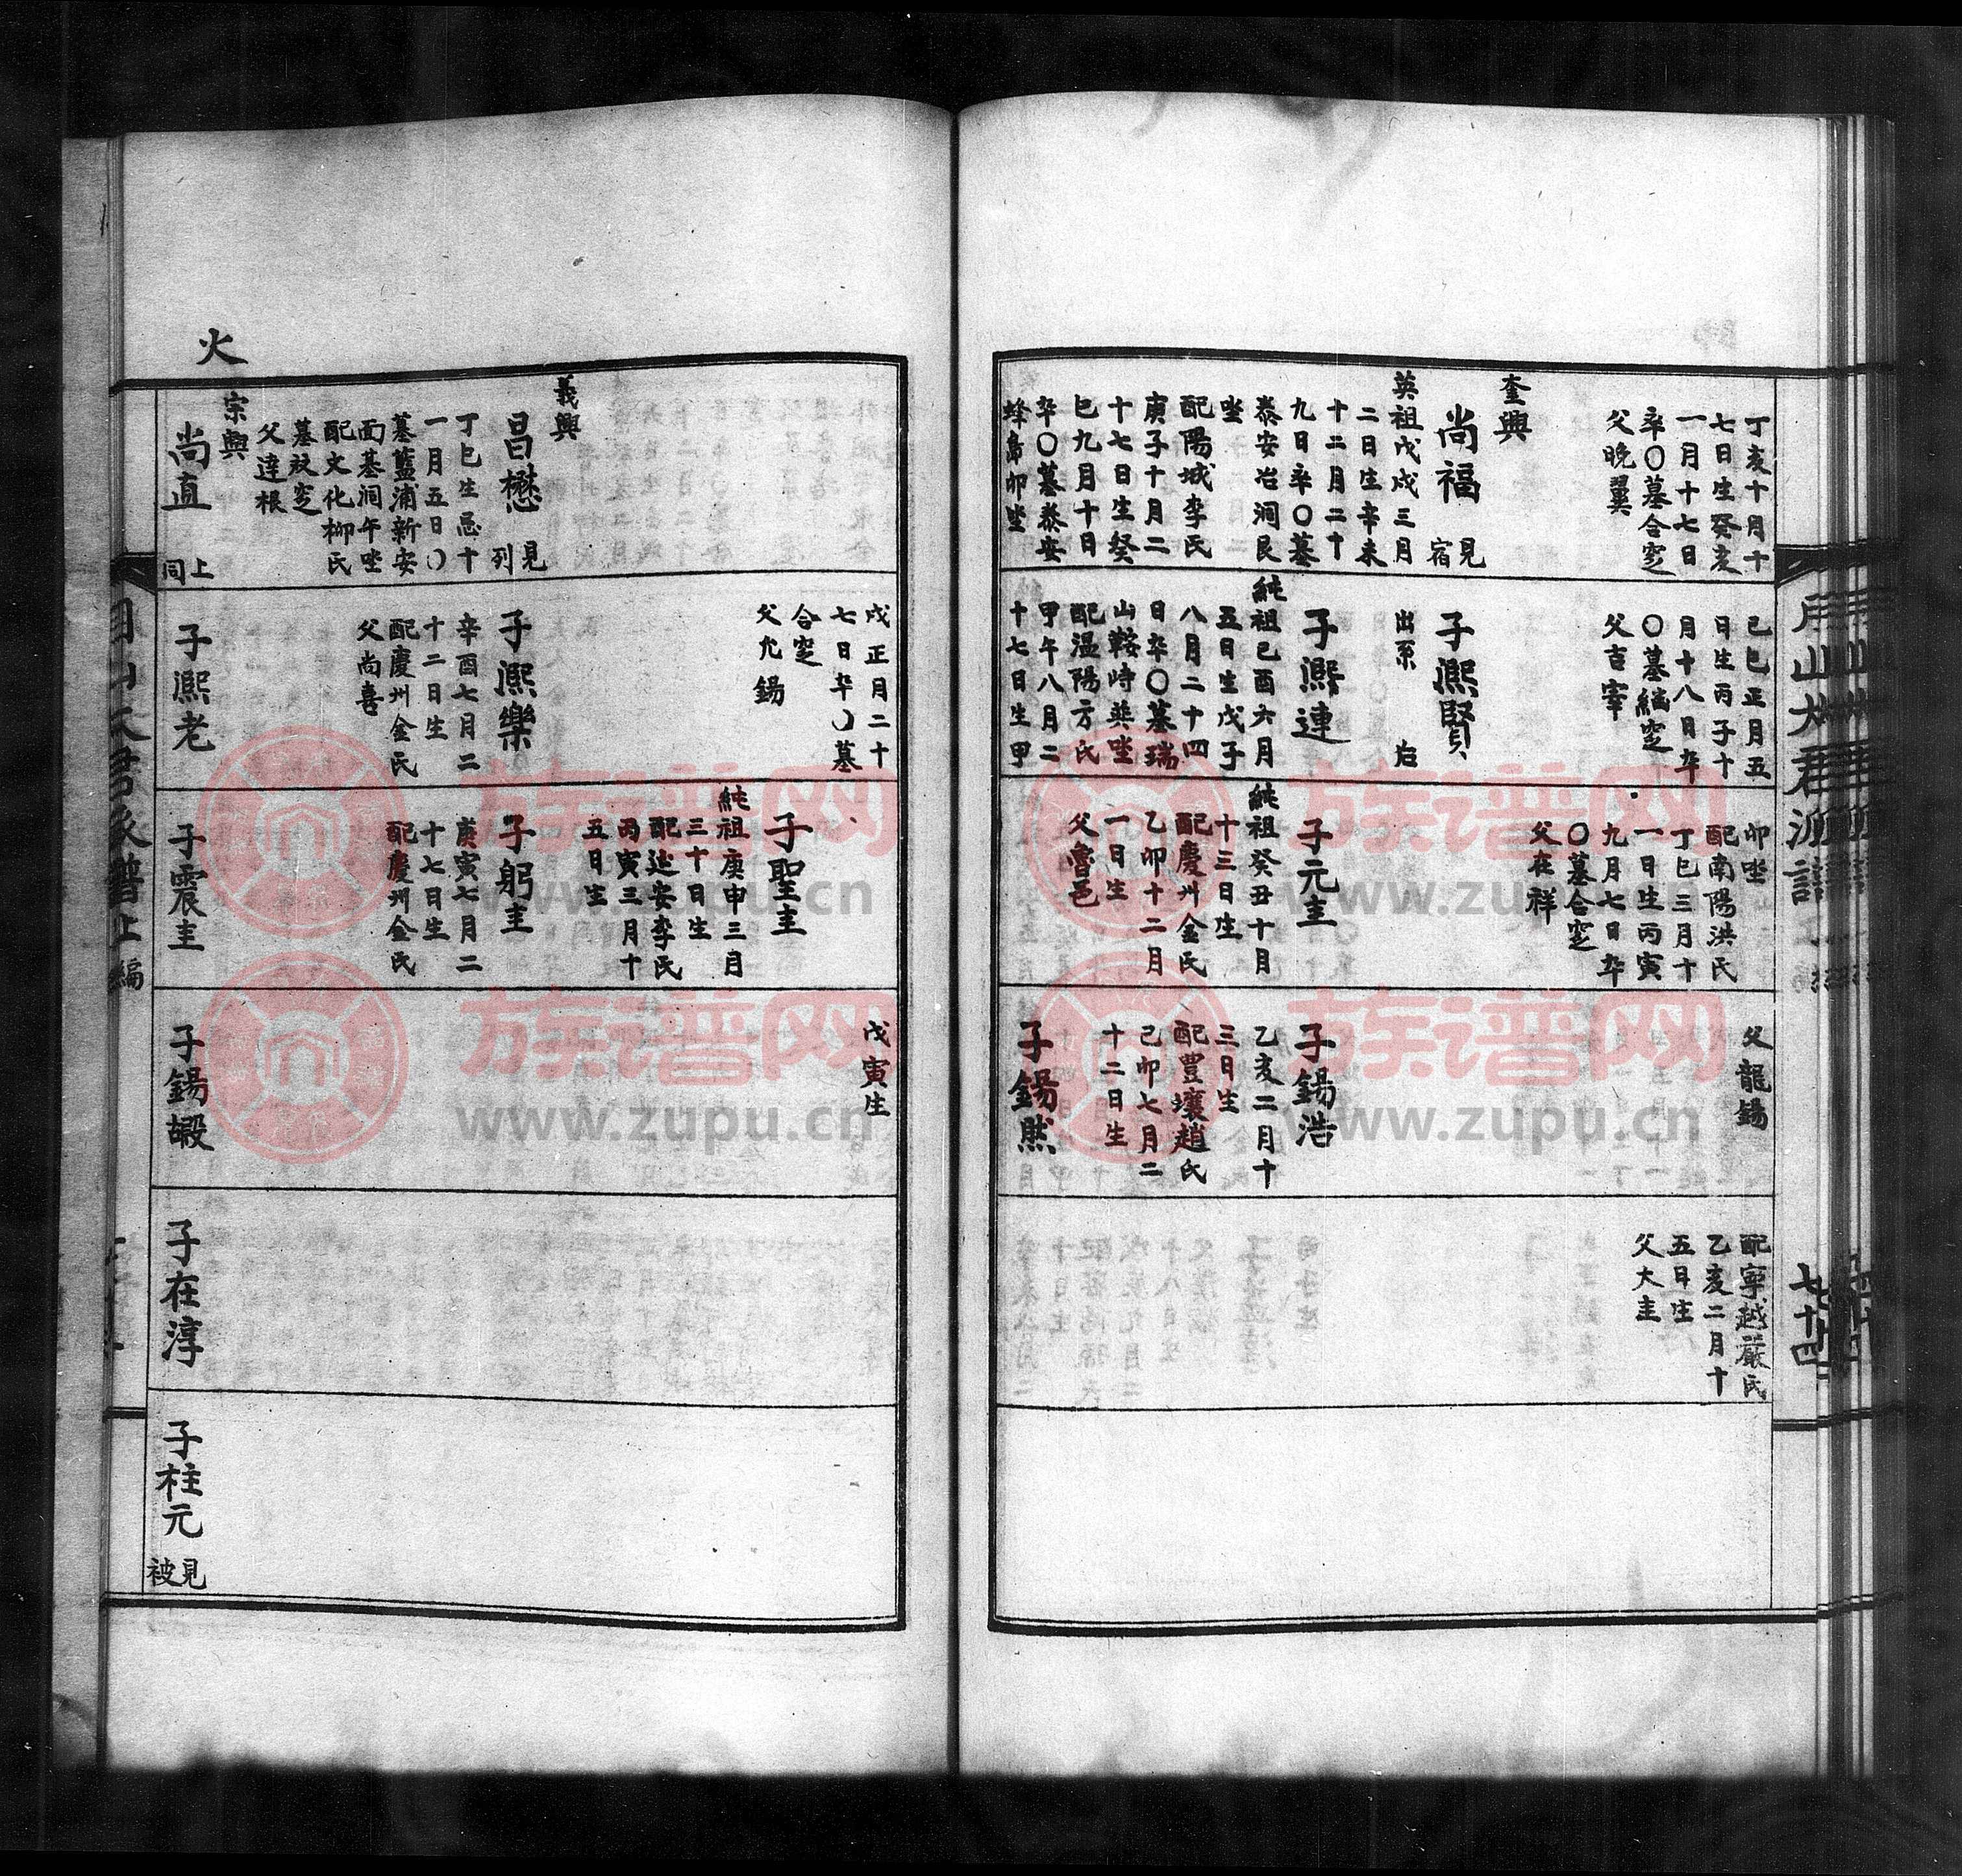 丁亥十月十
七日生癸亥
一月十七日
卒〇墓合窆
父晚翼
奎興
尚福
見
宿
英祖戊戌三月
二日生辛未
十二月二十
九日卒〇墓
泰安冶洞艮
坐
配陽城李氏
庚子十月二
十七日生癸
巳九月十日
卒〇墓泰安
蜂島卯坐
己巳正月五
日生丙子十
月十八日卒
〇墓編窆
父吉宰
子凞賢
出系
后
子凞連
純祖己酉六月
五日生戊子
八月二十四
日卒〇墓瑞
山鞍峙巽坐
配温陽方氏
甲午八月二
十七日生甲
卯坐
配南陽洪氏
丁巳三月十
一日生丙寅
九月七日卒
〇墓合窆
父在祥
子元圭
純祖癸丑十月
十三日生
配慶州金氏
乙卯十二月
一日生
父魯邑
父龍錫
子錫浩
乙亥二月十
三日生
配豊壤趙氏
己卯七月二
十二日生
子錫然
配寧越嚴氏
乙亥二月十
五日生
父大圭
七十四
義興
昌懋
見
列
丁巳生忌十
一月五日〇
墓藍浦新安
面基洞午坐
配文化柳氏
墓祔窆
父達根
宗興
尚直
上
同
戌正月二十
七日卒〇墓
合窆
父允錫
子凞樂
辛酉七月二
十二日生
配慶州金氏
父尚喜
子凞老
子聖圭
純祖庚申三月
三十日生
配延安李氏
丙寅三月十
五日生
子躬圭
庚寅七月二
十七日生
配慶州金氏
子震圭
戊寅生
子錫嘏
子在淳
子柱元
見
被
火
族谱网
www.zupu.cn
族谱网
www.zupu.cn
族谱网
www.zupu.cn
族谱网
www.zupu.cn